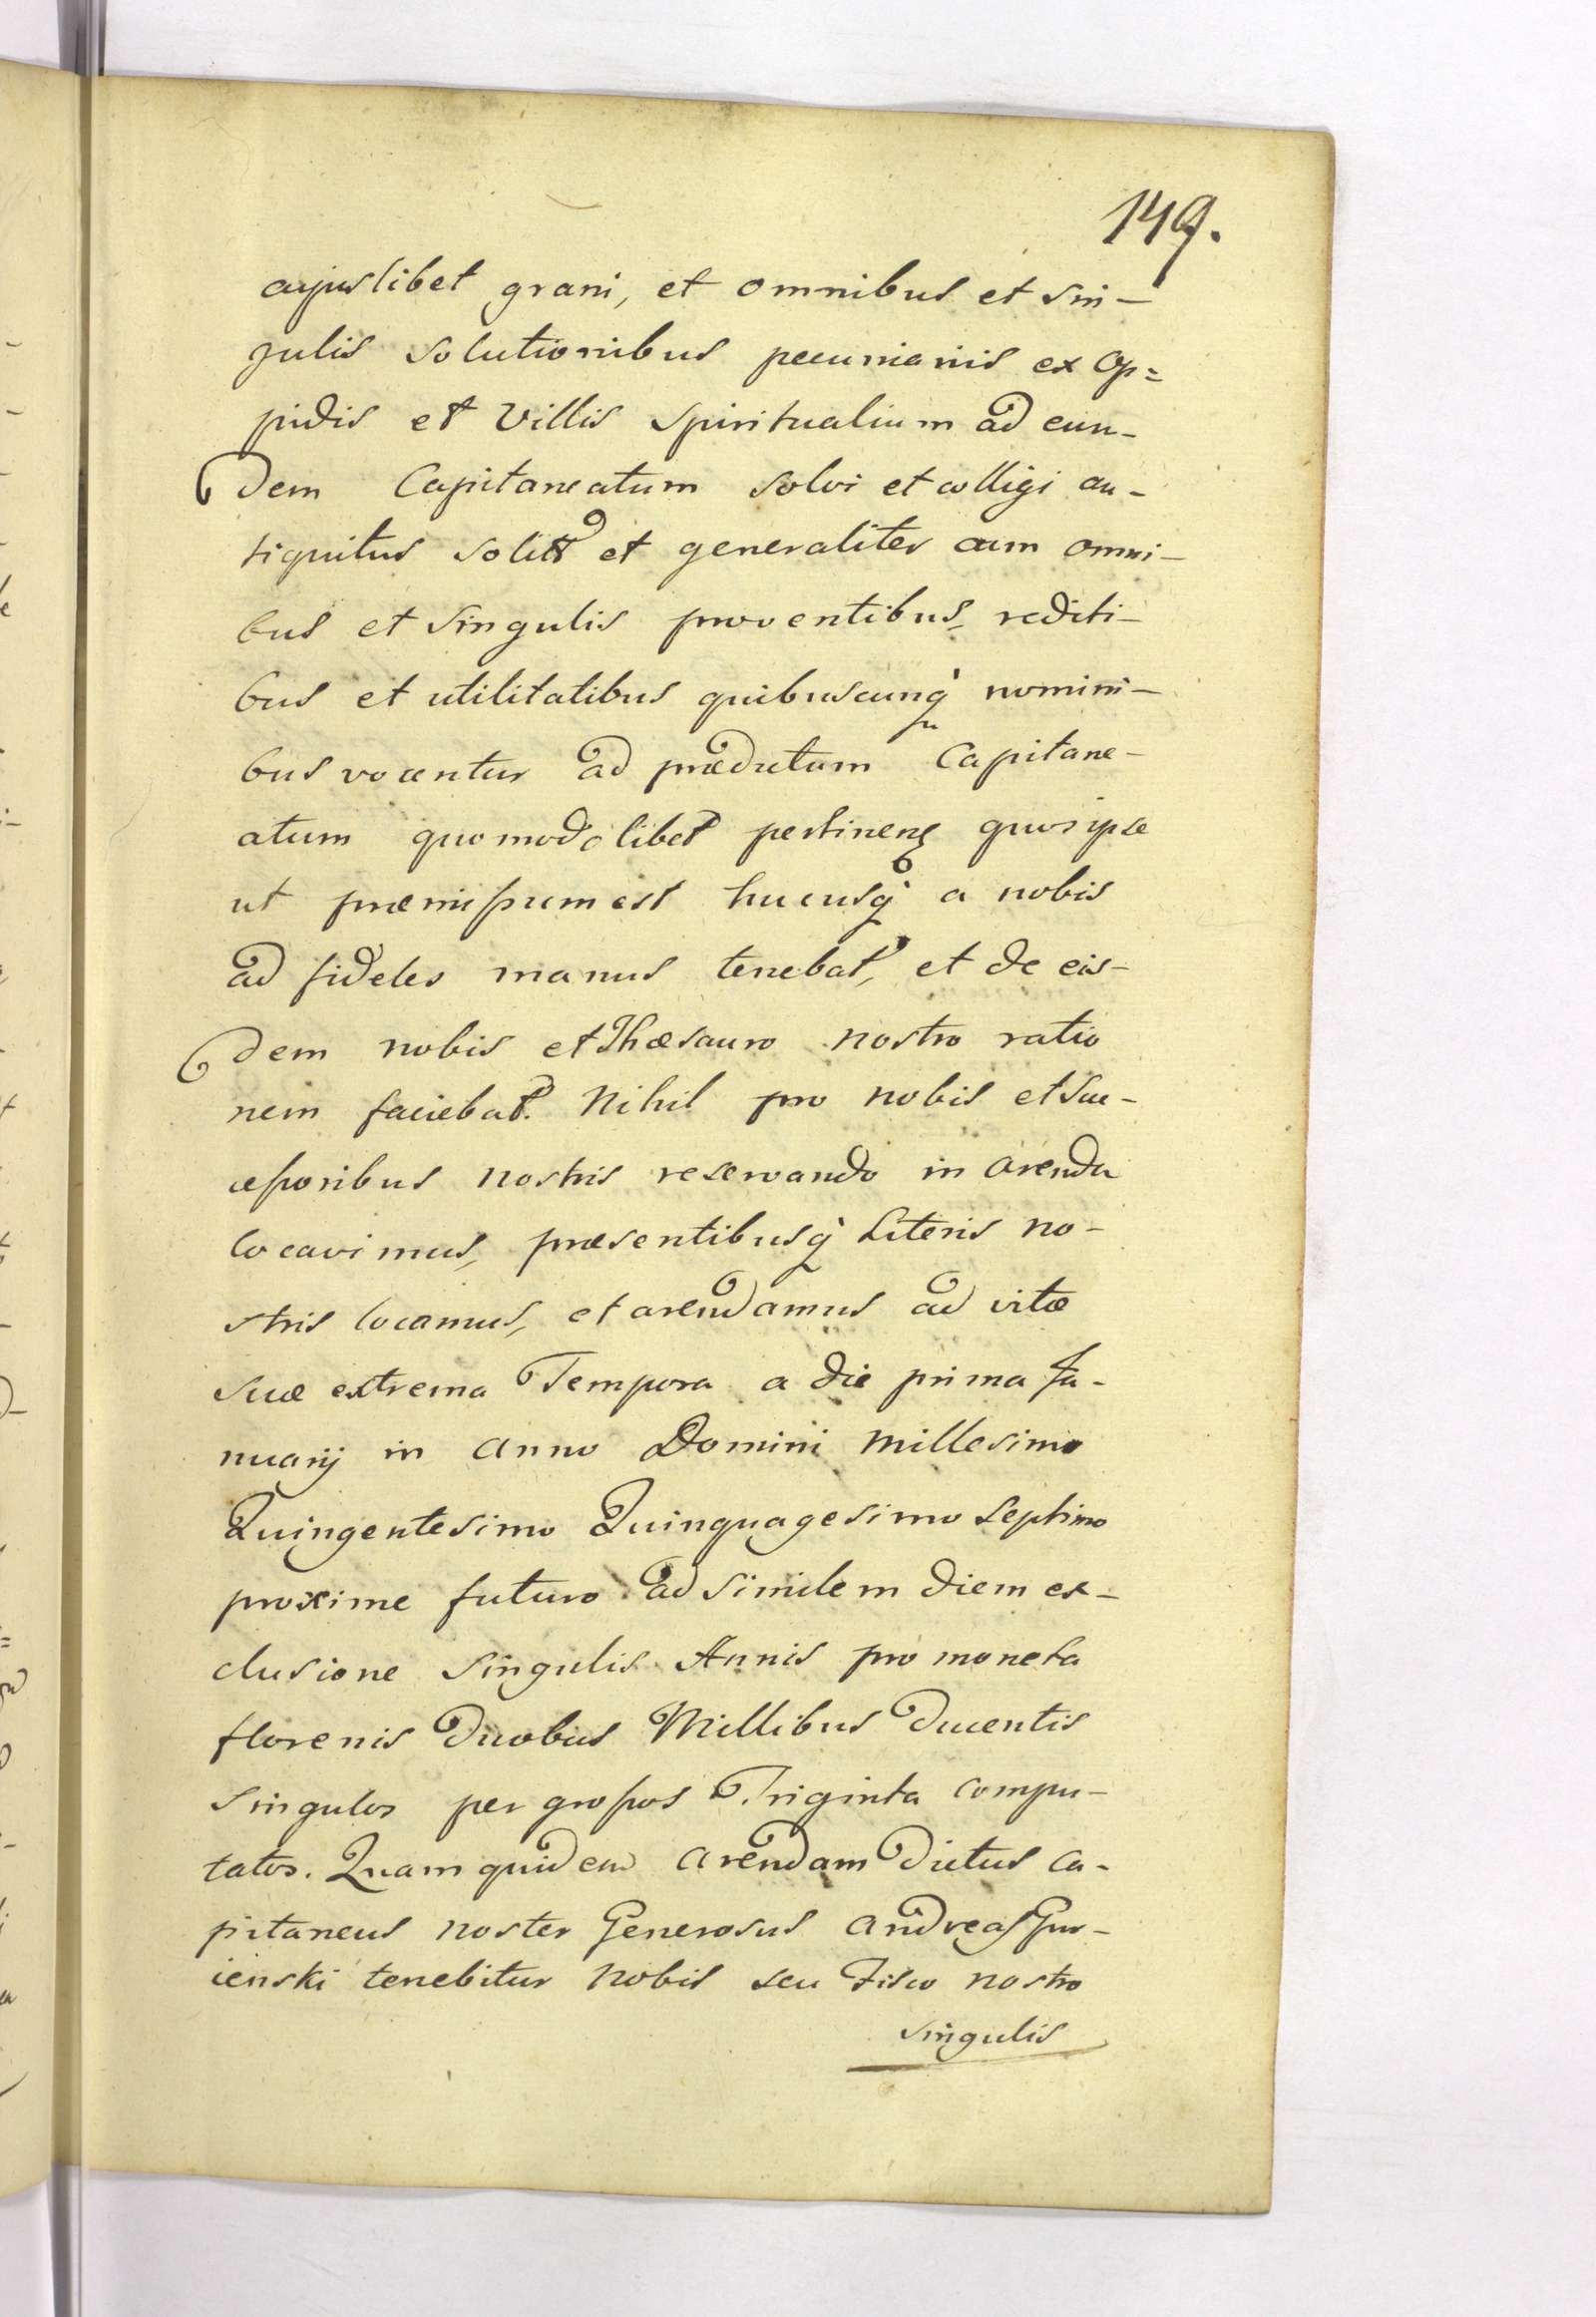 149.
cujuslibet grani, et omnibus et sin-
gulis solutionibus pecuniariis ex Op=
pidis et Villis Spiritualium ad eun-
dem Capitaneatum solvi et colligi an-
tiquitus solit et generaliter cum omni-
bus et singulis proventibus, rediti-
bus et utilitatibus quibuscunq nomini-
bus vocentur ad prædictum Capitane-
atum quomodolibet pertinen quos ipse
ut præmissum est hucusq a nobis
ad fideles manus tenebat, et de eis-
dem nobis et Thæsauro nostro ratio
nem faciebat. Nihil pro nobis et suc-
cessoribus nostris reservando in arenda
locavimus, præsentibusq Literis no-
stris locamus, et arendamus ad vitæ
suæ extrema Tempora a die prima Ja-
nuarij in anno Domini millesimo
Quingentesimo Quinquagesimo septimo
proxime futuro ad similem diem ex-
clusione singulis Annis pro moneta
florenis duobus Millibus ducentis
singulos per grossos Triginta compu-
tatos. Quam quidem arendam dictus Ca-
pitaneus noster Generosus Andreas
ienski tenebitur nobis seu Fisco nostro
singulis